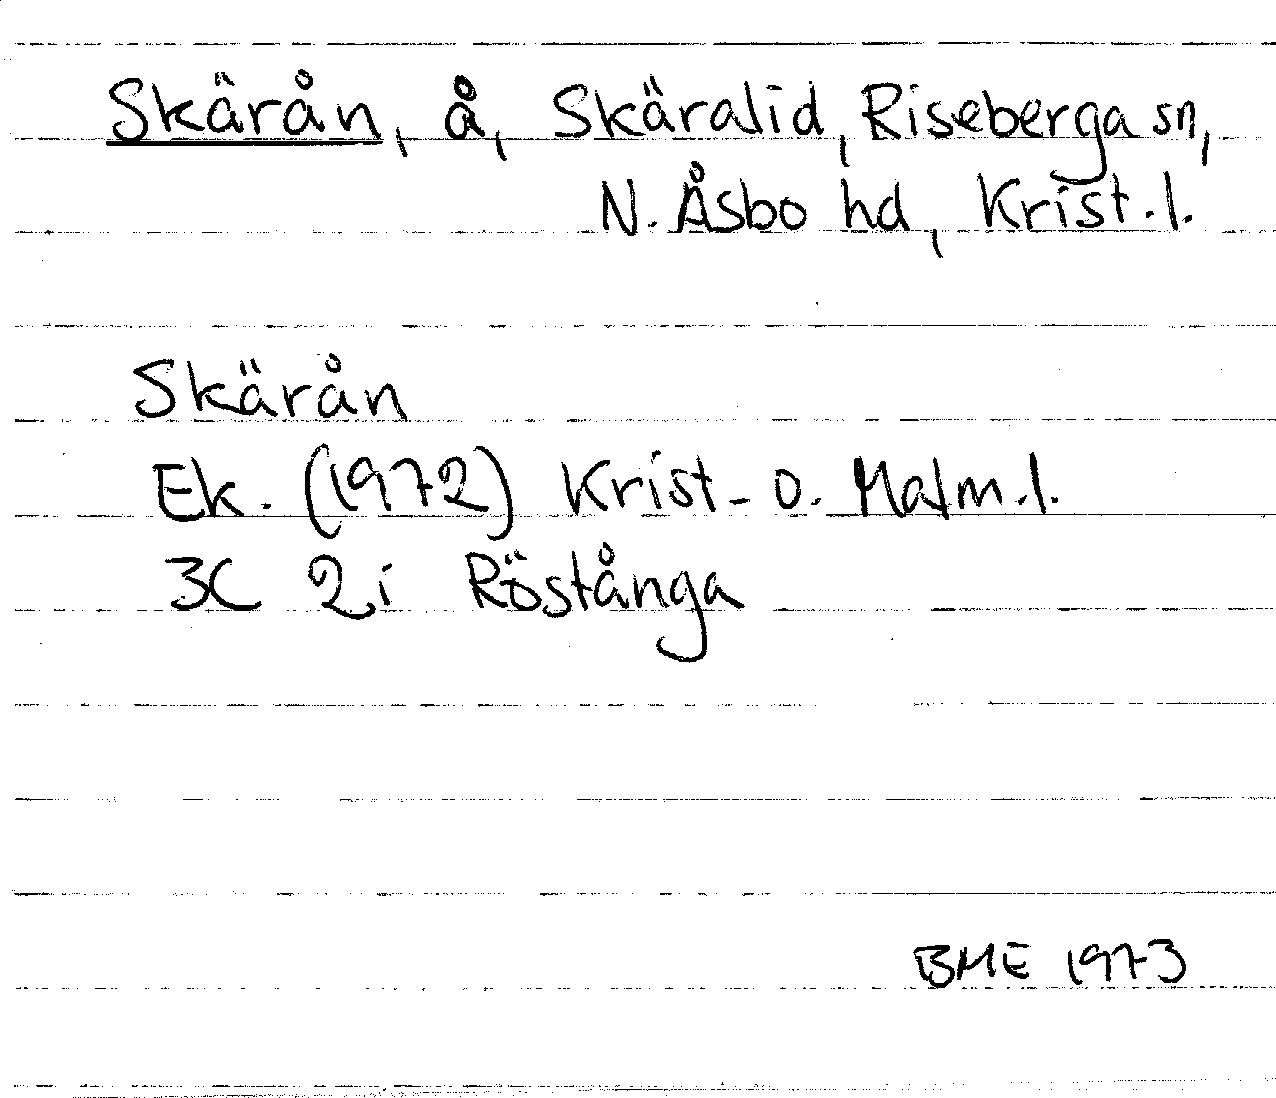 Skärån, å, Skäralid, Riseberga sn,
N. Åsbo hd, Krist. l.
Skärån
Ek. (1972) Krist- o. Malm. l.
3C 2i Röstånga
BME 1973